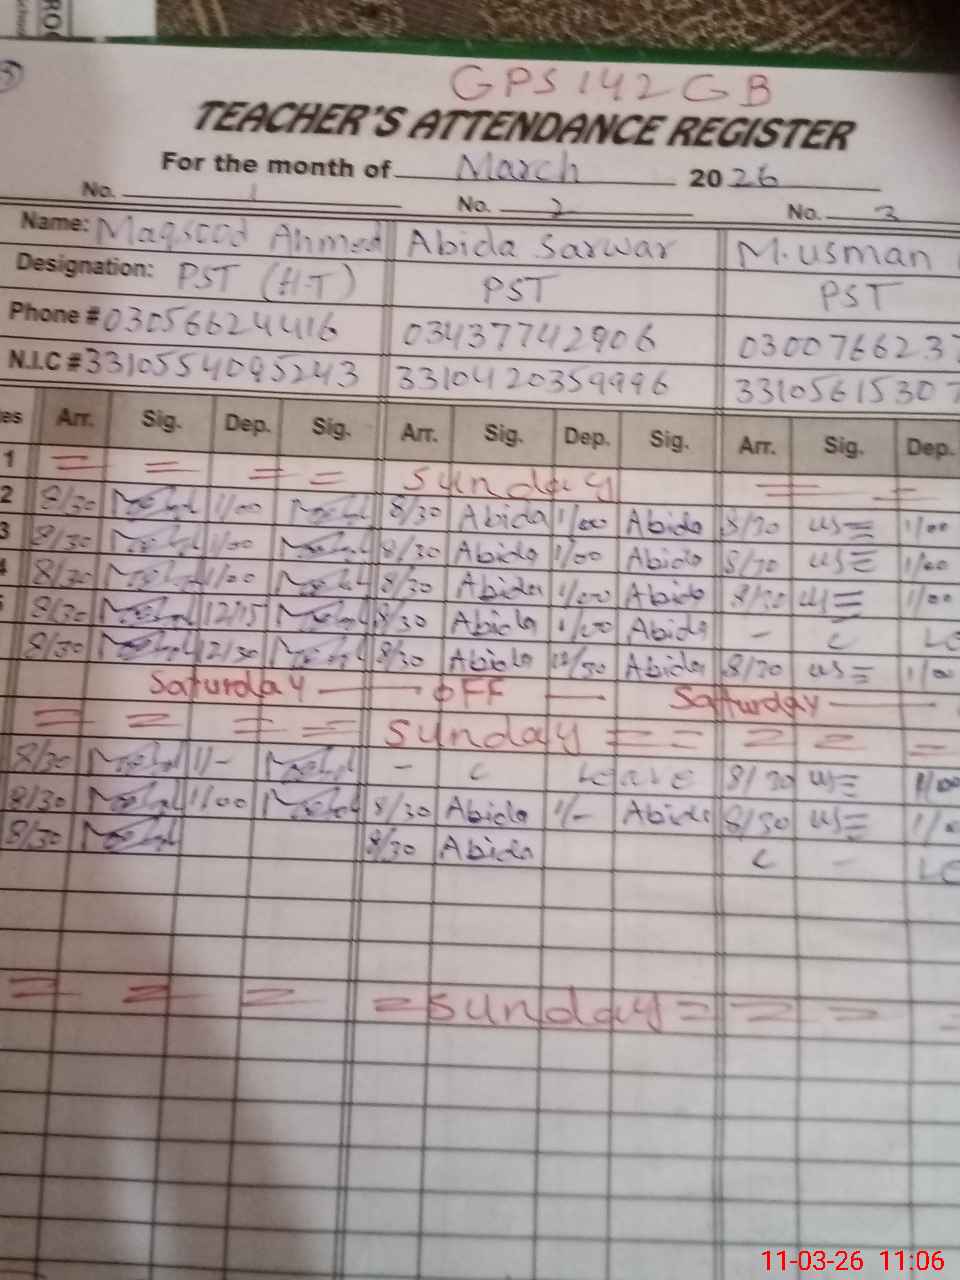 GPS 142 GB
TEACHER'S ATTENDANCE REGISTER
For the month of March 2026
No. 1 No. 2 No. 3
Name: Maqsood Ahmed Abida Sarwar M. usman
Designation: PST (H-T) PST PST
Phone # 03056624416 03437742906 0300766237
N.I.C # 3310554095243 3310420359996 3310561530
es Arr. Sig. Dep. Sig. Arr. Sig. Dep. Sig. Arr. Sig. Dep.
1 = = = = Sunday = =
2 8/30 1/00 8/30 Abida 1/00 Abida 8/30 us 1/00
3 8/30 1/00 8/30 Abida 1/00 Abida 8/30 us 1/00
4 8/30 1/00 8/30 Abida 1/00 Abida 8/30 us 1/00
5 8/30 12/15 8/30 Abida 1/00 Abida - C Le
8/30 12/30 8/30 Abida 12/30 Abida 8/30 us 1/00
Saturday — OFF — Saturday —
= = = = Sunday = = = = =
8/30 1/- - C Leave 8/30 us 1/00
8/30 1/00 8/30 Abida 1/- Abida 8/30 us 1/0
8/30 8/30 Abida C - Le
= = = = Sunday = = = =
11-03-26 11:06